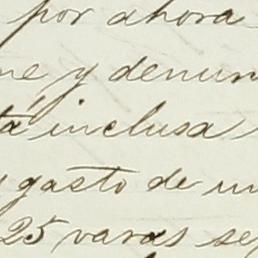 por ahora
y denun
tá inclusa
y gasto de un
25 varas se